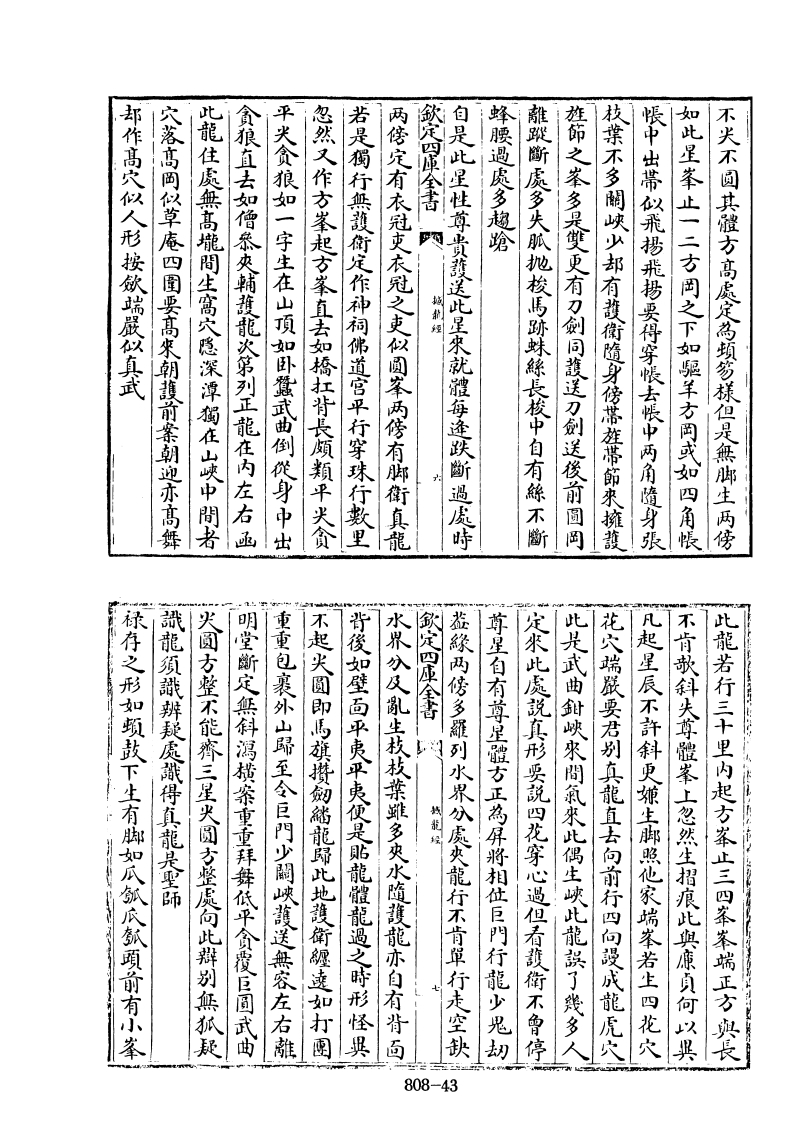 不尖不圓其體方高處定為頓笏樣但是無脚生两傍
如此星峯止一二方岡之下如驅羊方岡或如四角帳
帳中出帯似飛揚飛揚要得穿帳去帳中两角隨身張
枝葉不多關峽少却有護衛隨身傍帯旌帯節來擁護
旌節之峯多是雙更有刀劍同護送刀劍送後前圓岡
離蹤斷處多失脈抛梭馬跡蛛絲長梭中自有絲不斷
蜂腰過處多趨蹌
自是此星性尊貴護送此星來就體每逢跌斷過處時
欽定四庫全書
撼龍經
六
两傍定有衣冠吏衣冠之吏似圓峯两傍有脚衛真龍
若是獨行無護衛定作神祠佛道宫平行穿珠行數里
忽然又作方峯起方峯直去如橋杠背長頗類平尖貪
平尖貪狼如一字生在山頂如卧蠶武曲倒從身中出
貪狼直去如僧叅夾輔護龍次第列正龍在内左右函
此龍住處無高壠間生窩穴隠深潭獨在山峽中間者
穴落高岡似草庵四圍要高來朝護前案朝迎亦高舞
却作高穴似人形按劒端嚴似真武
此龍若行三十里内起方峯止三四峯峯端正方與長
不肯欹斜失尊體峯上忽然生摺痕此與㢘貞何以異
凡起星辰不許斜更嫌生脚照他家端峯若生四花穴
花穴端嚴要君别真龍直去向前行四向謾成龍虎穴
此是武曲鉗峽來間氣來此偶生峽此龍誤了幾多人
定來此處說真形要說四花穿心過但看護衛不曾停
尊星自有尊星體方正為屏將相位巨門行龍少鬼劫
葢緣两傍多羅列水界分處夾龍行不肯單行走空缺
欽定四庫全書
撼龍經
七
水界分及亂生枝枝葉雖多夾水隨護龍亦自有背面
背後如壁面平夷平夷便是貼龍體龍過之時形怪異
不起尖圓即馬旗攢劒繙龍歸此地護衛纒遶如打團
重重包裹外山歸至令巨門少闗峽護送無容左右離
明堂斷定無斜瀉横案重重拜舞低平貪覆巨圓武曲
尖圓方整不能齊三星尖圓方整處向此辯别無狐疑
識龍須識辨疑處識得真龍是聖師
禄存之形如頓鼓下生有脚如瓜瓠瓜瓠頭前有小峯
808-43